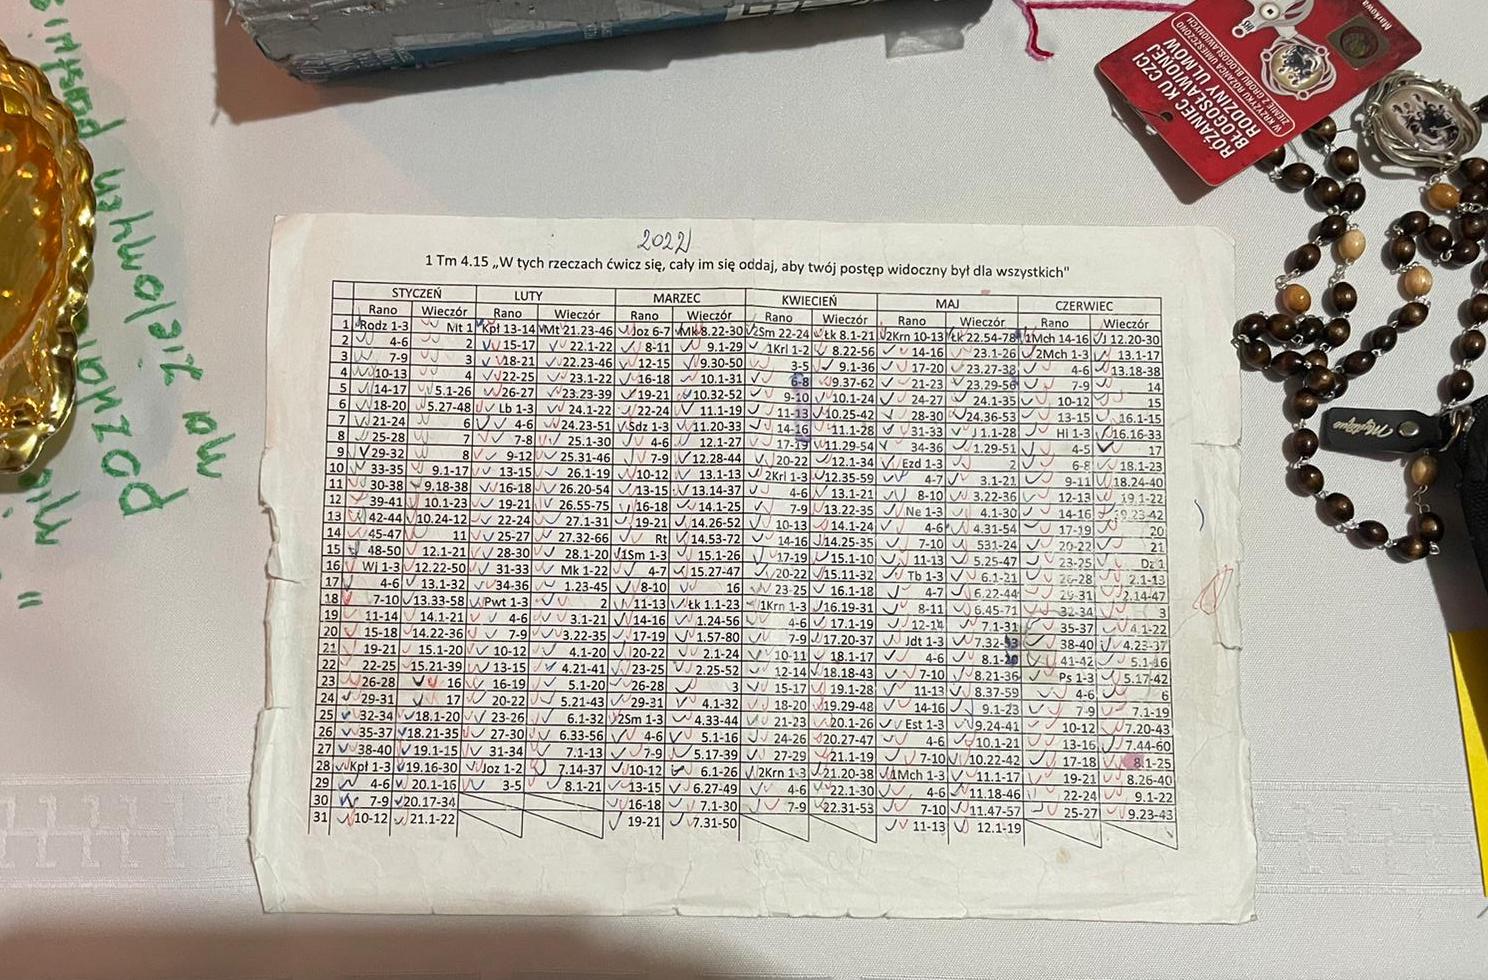 2022
1 Tm 4.15 „W tych rzeczach ćwicz się, cały im się oddaj, aby twój postęp widoczny był dla wszystkich"
STYCZEŃ LUTY MARZEC KWIECIEŃ MAJ CZERWIEC
Rano Wieczór Rano Wieczór Rano Wieczór Rano Wieczór Rano Wieczór Rano Wieczór
1 Rodz 1-3 Mt 1 Kpł 13-14 Mt 21.23-46 Joz 6-7 Mk 8.22-30 2Sm 22-24 Łk 8.1-21 2Krn 10-13 Łk 22.54-78 1Mch 14-16 J 12.20-30
2 4-6 2 15-17 22.1-22 8-11 9.1-29 1Krl 1-2 8.22-56 14-16 23.1-26 2Mch 1-3 13.1-17
3 7-9 3 18-21 22.23-46 12-15 9.30-50 3-5 9.1-36 17-20 23.27-38 4-6 13.18-38
4 10-13 4 22-25 23.1-22 16-18 10.1-31 6-8 9.37-62 21-23 23.29-56 7-9 14
5 14-17 5.1-26 26-27 23.23-39 19-21 10.32-52 9-10 10.1-24 24-27 24.1-35 10-12 15
6 18-20 5.27-48 Lb 1-3 24.1-22 22-24 11.1-19 11-13 10.25-42 28-30 24.36-53 13-15 16.1-15
7 21-24 6 4-6 24.23-51 Sdz 1-3 11.20-33 14-16 11.1-28 31-33 J 1.1-28 Hi 1-3 16.16-33
8 25-28 7 7-8 25.1-30 4-6 12.1-27 17-19 11.29-54 34-36 1.29-51 4-5 17
9 29-32 8 9-12 25.31-46 7-9 12.28-44 20-22 12.1-34 Ezd 1-3 2 6-8 18.1-23
10 33-35 9.1-17 13-15 26.1-19 10-12 13.1-13 2Krl 1-3 12.35-59 4-7 3.1-21 9-11 18.24-40
11 30-38 9.18-38 16-18 26.20-54 13-15 13.14-37 4-6 13.1-21 8-10 3.22-36 12-13 19.1-22
12 39-41 10.1-23 19-21 26.55-75 16-18 14.1-25 7-9 13.22-35 Ne 1-3 4.1-30 14-16 19.23-42
13 42-44 10.24-12 22-24 27.1-31 19-21 14.26-52 10-13 14.1-24 4-6 4.31-54 17-19 20
14 45-47 11 25-27 27.32-66 Rt 14.53-72 14-16 14.25-35 7-10 531-24 20-22 21
15 48-50 12.1-21 28-30 28.1-20 1Sm 1-3 15.1-26 17-19 15.1-10 11-13 5.25-47 23-25 Dz 1
16 Wj 1-3 12.22-50 31-33 Mk 1-22 4-7 15.27-47 20-22 15.11-32 Tb 1-3 6.1-21 26-28 2.1-13
17 4-6 13.1-32 34-36 1.23-45 8-10 16 23-25 16.1-18 4-7 6.22-44 29-31 2.14-47
18 7-10 13.33-58 Pwt 1-3 2 11-13 Łk 1.1-23 1Krn 1-3 16.19-31 8-11 6.45-71 32-34 3
19 11-14 14.1-21 4-6 3.1-21 14-16 1.24-56 4-6 17.1-19 12-14 7.1-31 35-37 4.1-22
20 15-18 14.22-36 7-9 3.22-35 17-19 1.57-80 7-9 17.20-37 Jdt 1-3 7.32-53 38-40 4.23-37
21 19-21 15.1-20 10-12 4.1-20 20-22 2.1-24 10-11 18.1-17 4-6 8.1-20 41-42 5.1-16
22 22-25 15.21-39 13-15 4.21-41 23-25 2.25-52 12-14 18.18-43 7-10 8.21-36 Ps 1-3 5.17-42
23 26-28 16 16-19 5.1-20 26-28 3 15-17 19.1-28 11-13 8.37-59 4-6 6
24 29-31 17 20-22 5.21-43 29-31 4.1-32 18-20 19.29-48 14-16 9.1-23 7-9 7.1-19
25 32-34 18.1-20 23-26 6.1-32 2Sm 1-3 4.33-44 21-23 20.1-26 Est 1-3 9.24-41 10-12 7.20-43
26 35-37 18.21-35 27-30 6.33-56 4-6 5.1-16 24-26 20.27-47 4-6 10.1-21 13-16 7.44-60
27 38-40 19.1-15 31-34 7.1-13 7-9 5.17-39 27-29 21.1-19 7-10 10.22-42 17-18 8.1-25
28 Kpł 1-3 19.16-30 Joz 1-2 7.14-37 10-12 6.1-26 2Krn 1-3 21.20-38 1Mch 1-3 11.1-17 19-21 8.26-40
29 4-6 20.1-16 3-5 8.1-21 13-15 6.27-49 4-6 22.1-30 4-6 11.18-46 22-24 9.1-22
30 7-9 20.17-34 16-18 7.1-30 7-9 22.31-53 7-10 11.47-57 25-27 9.23-43
31 10-12 21.1-22 19-21 7.31-50 11-13 12.1-19
RÓŻANIEC KU CZCI
BŁOGOSŁAWIONEJ
RODZINY ULMÓW
W KRZYŻYKU RÓŻAŃCA UMIESZCZONO
ZIEMIĘ Z GROBU BŁOGOSŁAWIONYCH
Markowa
na zielonych